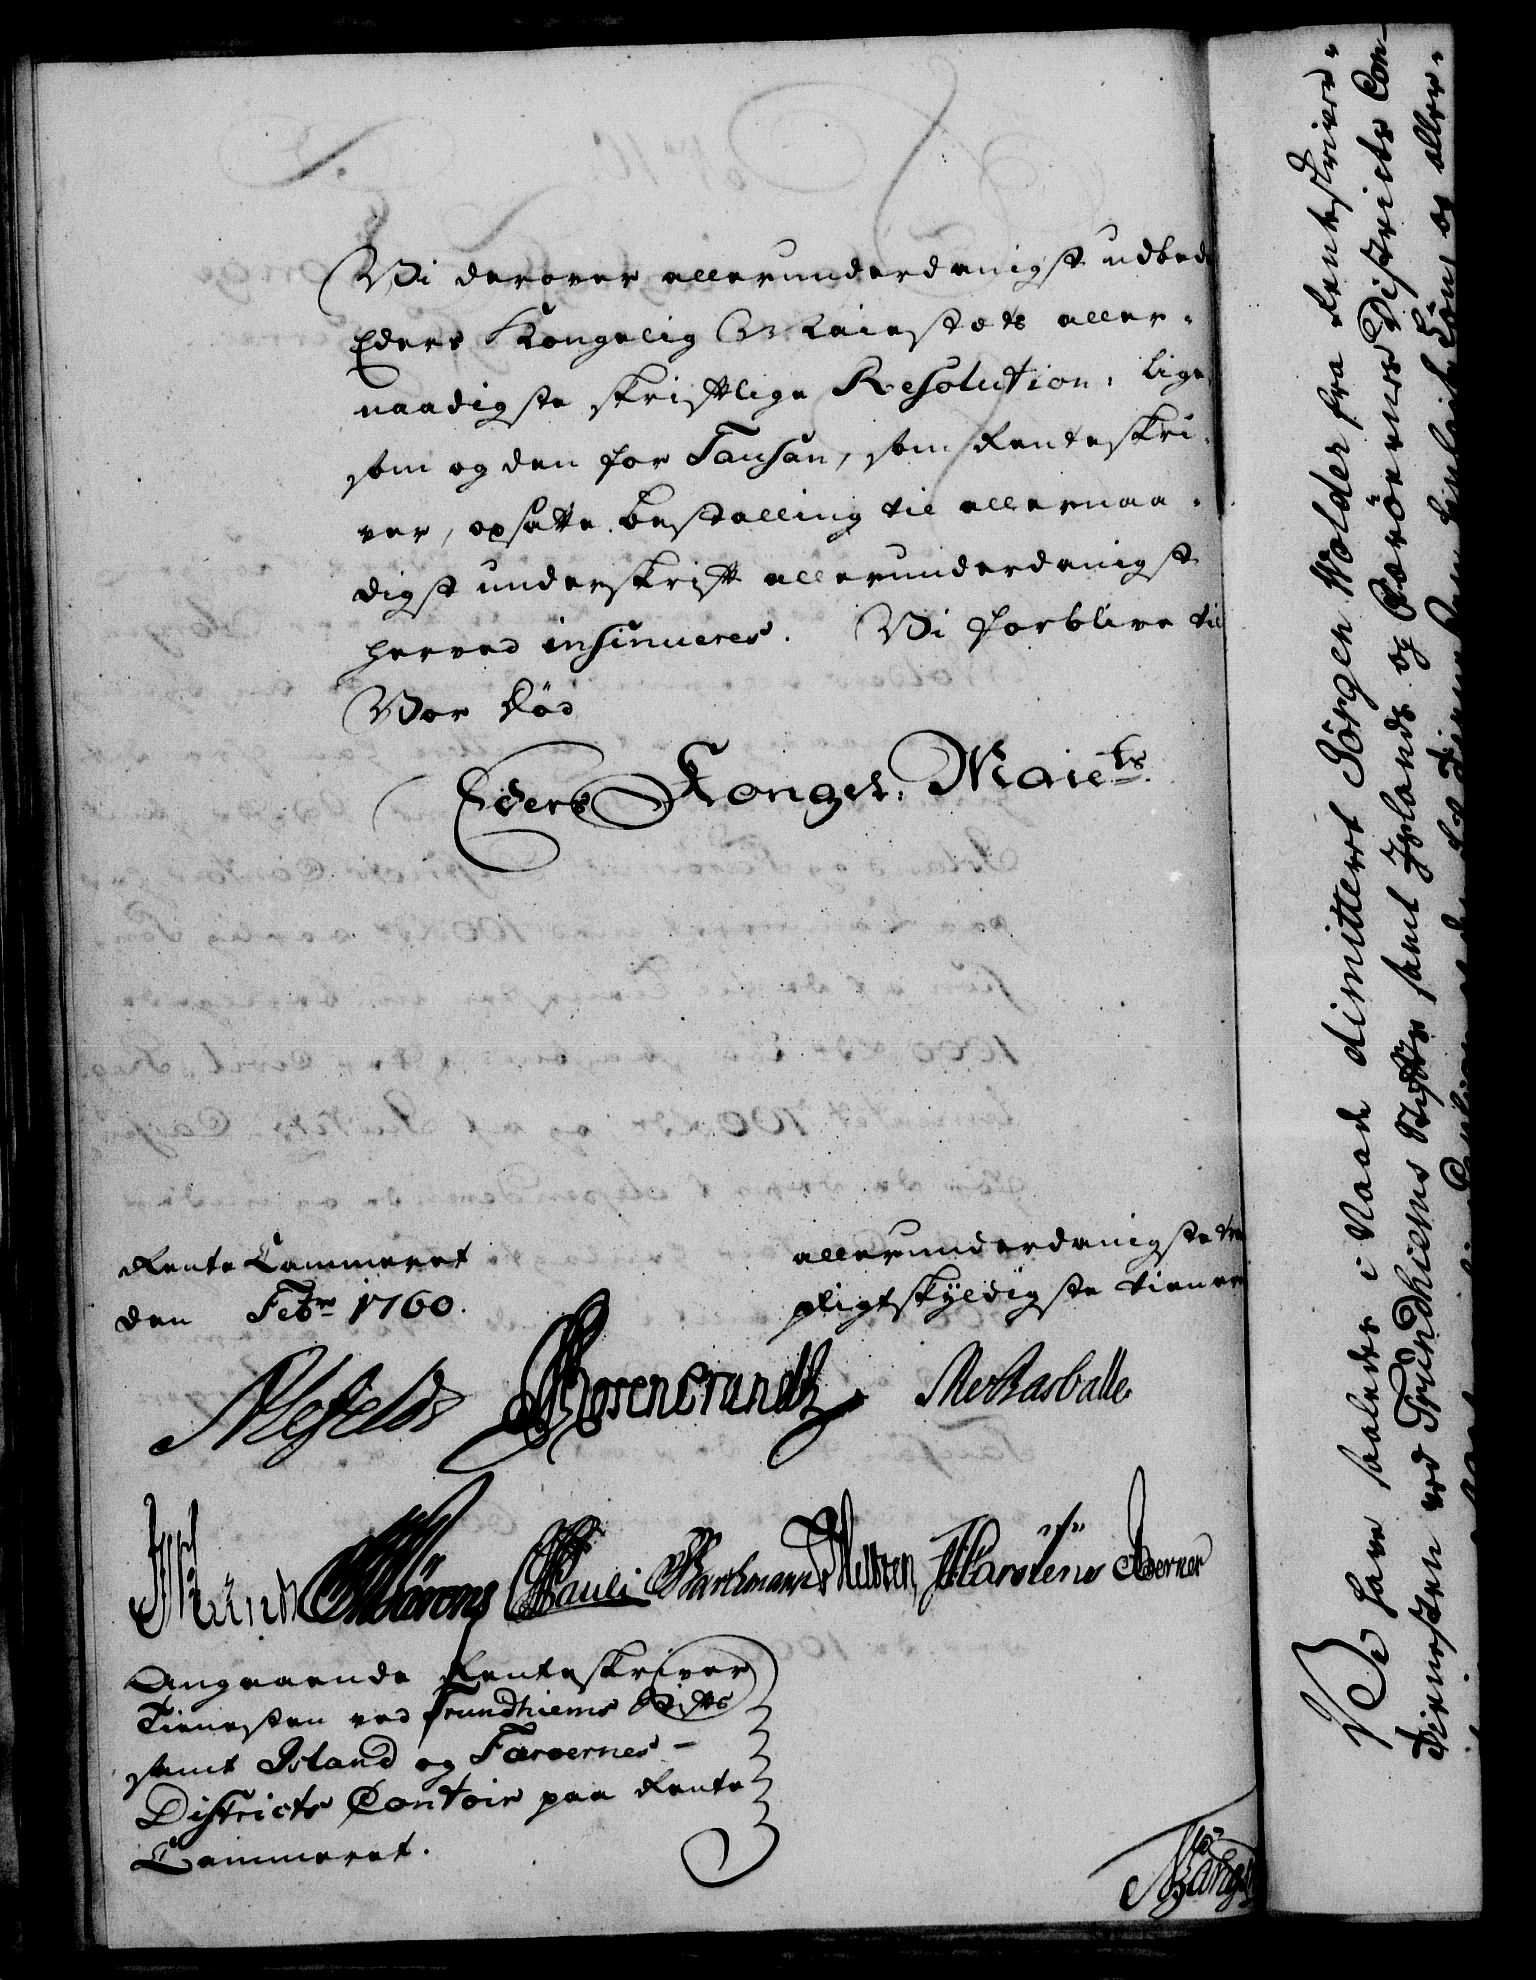 Vi derover allerunderdanigst udbede
Eders Kongelig Maiestæts aller-
naadigste skriftlige Resolution, lige
som og den for Tausan, som Renteskri-
ver, opsatte bestalling til allernaa-
digst underskrift allerunderdanigst
herved insinueres. Vi forblive til
Vor Død
Eders Kongel. Maiets
Rente Cammeret
den Febr 1760.
allerunderdanigste
pligtskyldigste tienere
Ahlefeldt Rosencrandtz
Pauli
Angaaende Renteskriver
Tienesten ved Trundhiems Stifts
samt Island og Færøernes
Districts Contoir paa Rente
Cammeret.
Vi have saaledes i Naade dimitteret Jörgen Wolder fra Renteskriver-
Tienesten ved Trundhiems Stifts samt Islands og Færöernes Districts Con-